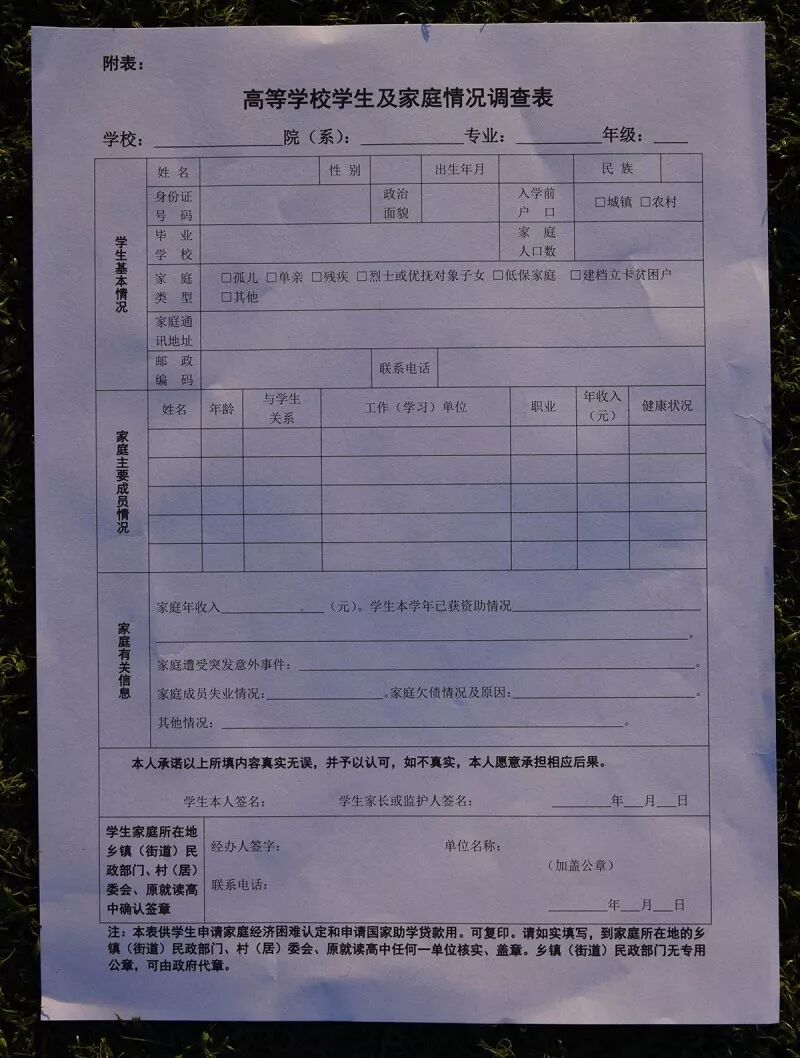 附表：
高等学校学生及家庭情况调查表
学校：____________院（系）：__________专业：________年级：___
学生基本情况
姓 名 性 别 出生年月 民 族
身份证号 码 政治面貌 入学前户 口 □城镇 □农村
毕 业学 校 家 庭人口数
家 庭类 型 □孤儿 □单亲 □残疾 □烈士或优抚对象子女 □低保家庭 □建档立卡贫困户
□其他
家庭通讯地址
邮 政编 码 联系电话
家庭主要成员情况
姓名 年龄 与学生关系 工作（学习）单位 职业 年收入（元） 健康状况
家庭有关信息
家庭年收入__________（元）。学生本学年已获资助情况__________________
______________________________________________________。
家庭遭受突发意外事件：________________________________________。
家庭成员失业情况：____________。家庭欠债情况及原因：__________________。
其他情况：________________________________________。
本人承诺以上所填内容真实无误，并予以认可，如不真实，本人愿意承担相应后果。
学生本人签名： 学生家长或监护人签名： ______年__月__日
学生家庭所在地
乡镇（街道）民
政部门、村（居）
委会、原就读高
中确认签章
经办人签字： 单位名称：
（加盖公章）
联系电话：
______年__月__日
注：本表供学生申请家庭经济困难认定和申请国家助学贷款用。可复印。请如实填写，到家庭所在地的乡
镇（街道）民政部门、村（居）委会、原就读高中任何一单位核实、盖章。乡镇（街道）民政部门无专用
公章，可由政府代章。